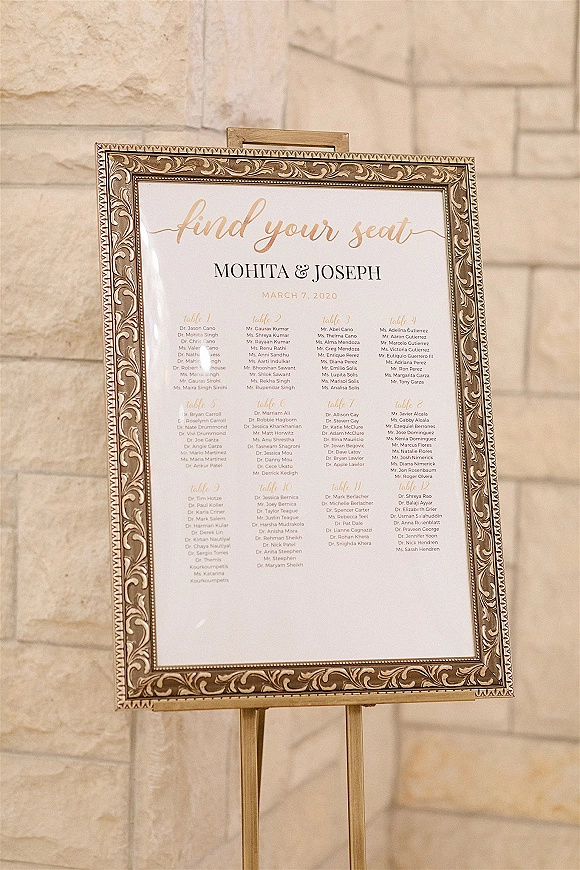 find your seat
MOHITA & JOSEPH
MARCH 7, 2020
table 1
Dr. Jason Cano
Dr. Mohita Singh
Dr. Chris Cano
Ms. Cano
Dr.
Dr.
Dr. Robert
Ms. Singh
Mr. Gaurav Sirohi
Ms. Maira Singh Sirohi
table 2
Mr. Gaurav Kumar
Ms. Shreya Kumar
Mr. Rayaan Kumar
Ms. Renu Rathi
Ms. Anni Sandhu
Ms. Aarti Indulkar
Mr. Bhooshan Sawant
Mr. Shlok Sawant
Ms. Rekha Singh
Mr. Rupendar Singh
table 3
Mr. Abel Cano
Ms. Thelma Cano
Ms. Alma Mendoza
Mr. Greg Mendoza
Mr. Enrique Perez
Ms. Diana Perez
Mr. Emilio Solis
Ms. Lupita Solis
Ms. Marisol Solis
Ms. Analisa Solis
table 4
Ms. Adelina Gutierrez
Mr. Aaron Gutierrez
Mr. Marcelo Gutierrez
Ms. Victoria Gutierrez
Mr. Eutiquio Guerrero III
Ms. Adriana Perez
Mr. Ron Perez
Ms. Margarita Garza
Mr. Tony Garza
table 5
Dr. Bryan Carroll
Dr. Roselynn Carroll
Dr. Nate Drummond
Dr. Drummond
Dr. Joe Garza
Dr. Angie Garza
Mr. Mario Martinez
Ms. Maria Martinez
Dr. Ankur Patel
table 6
Dr. Marriam Ali
Dr. Robbie Hagborn
Dr. Jessica Khankhanian
Mr. Matt Horwitz
Ms. Anu Shrestha
Dr. Tasneem Shagroni
Dr. Jessica Mou
Dr. Danny Mou
Dr. Cece Ukatu
Mr. Derrick Kedigh
table 7
Dr. Allison Gay
Dr. Steven Gay
Dr. Katie McClure
Dr. Adam McClure
Dr. Rina Mauricio
Dr. Jovan Begovic
Dr. Dave Latov
Dr. Bryan Lawlor
Dr. Apple Lawlor
table 8
Mr. Javier Alcala
Ms. Gabby Alcala
Mr. Ezequiel Berrones
Mr. Jose Dominguez
Ms. Kenia Dominguez
Mr. Marcus Flores
Ms. Natalie Flores
Mr. Josh Nimerick
Ms. Diana Nimerick
Mr. Jon Rosenbaum
Mr. Roger Olvera
table 9
Dr. Tim Hotze
Dr. Paul Koller
Dr. Karla Criner
Dr. Mark Salem
Dr. Harman Kular
Dr. Derek Lin
Dr. Kirtan Nautiyal
Dr. Chaya Nautiyal
Dr. Sergio Torres
Dr. Themis
Kourkoumpetis
Ms. Katarina
Kourkoumpetis
table 10
Dr. Jessica Bernica
Mr. Joey Bernica
Dr. Taylor Teague
Mr. Justin Teague
Dr. Harsha Mudrakola
Dr. Anisha Misra
Dr. Rehman Sheikh
Dr. Nick Patel
Dr. Anita Steephen
Mr. Steephen
Dr. Maryam Sheikh
table 11
Dr. Mark Berlacher
Dr. Michelle Berlacher
Dr. Spencer Carter
Ms. Rebecca Teel
Dr. Pat Dale
Dr. Lianne Cagnazzi
Dr. Rohan Khera
Dr. Snighda Khera
table 12
Dr. Shreya Rao
Dr. Balaji Ayyar
Dr. Elizabeth Grier
Dr. Usman Salahuddin
Dr. Anna Rosenblatt
Dr. Praveen George
Dr. Jennifer Yoon
Dr. Nick Hendren
Ms. Sarah Hendren